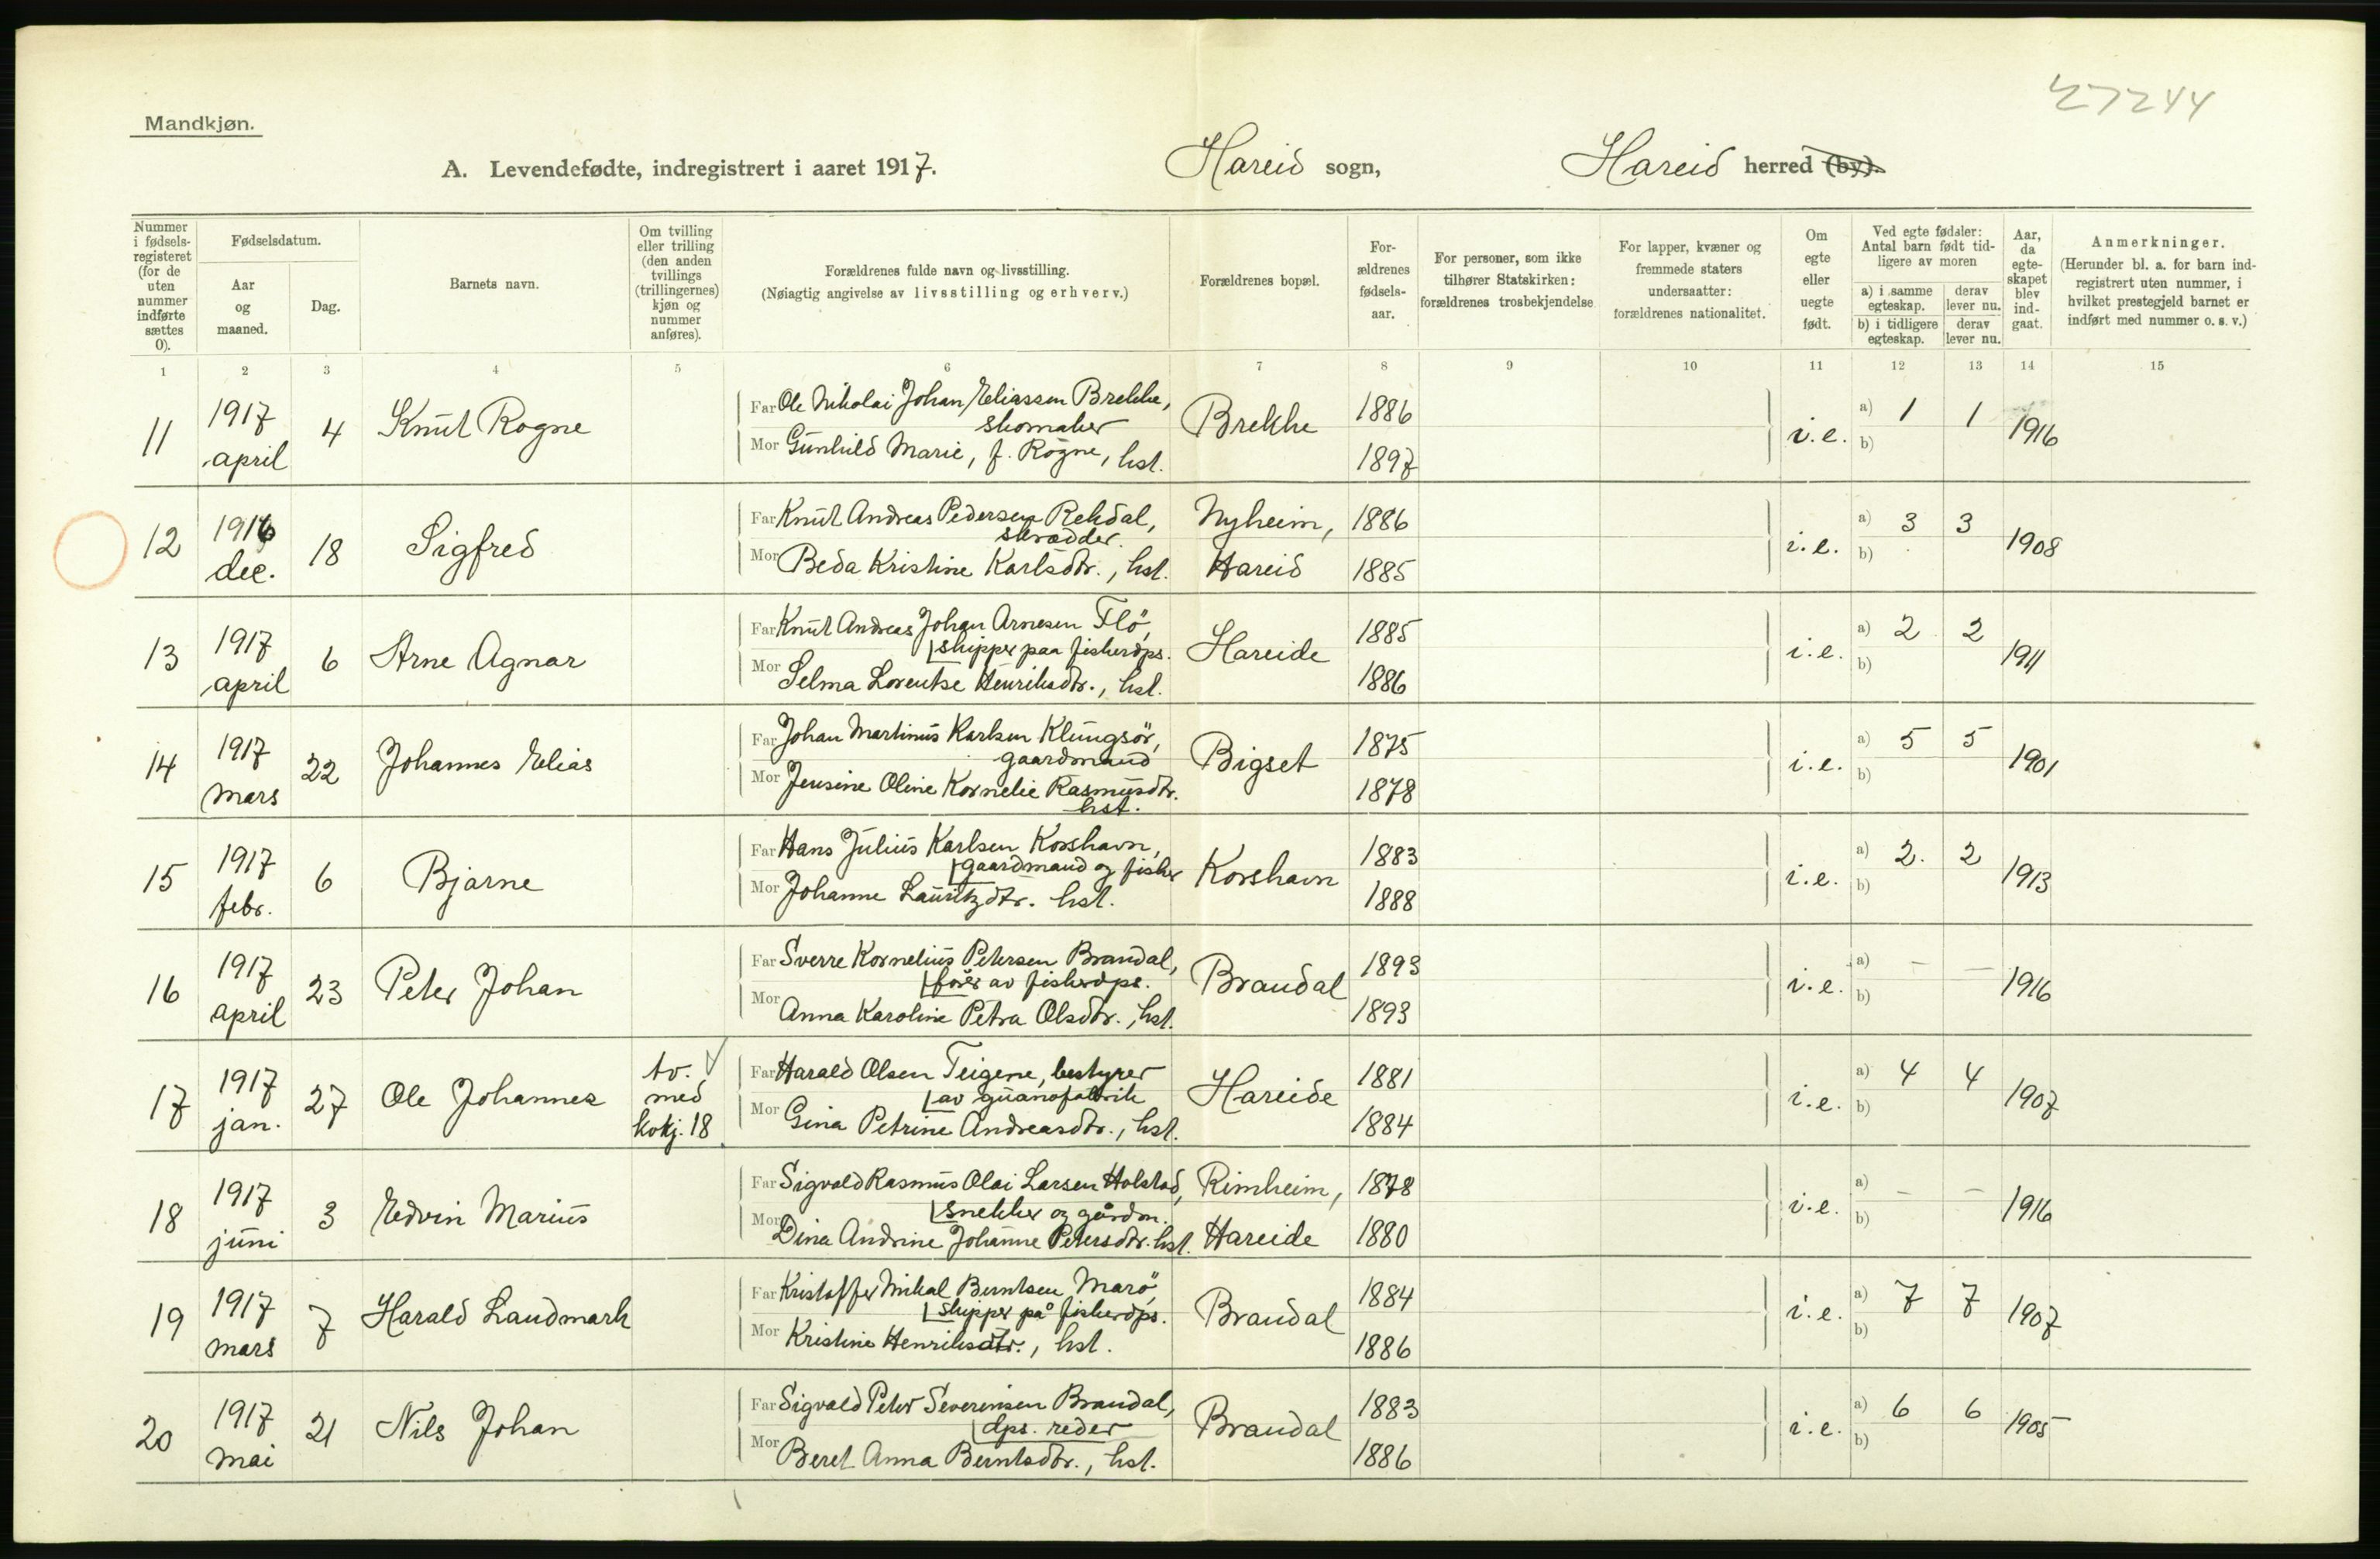 27244
Mandkjøn.
A. Levendefødte, indregistrert i aaret 1917. Hareid sogn, Hareid herred (by).
Nummer i fødsels-registeret (for de uten nummer indførte sættes 0).
Fødselsdatum.
Aar og maaned.
Dag.
Barnets navn.
Om tvilling eller trilling (den anden tvillings (trillingernes) kjøn og nummer anføres).
Forældrenes fulde navn og livsstilling.
(Nøiagtig angivelse av livsstilling og erhverv.)
Forældrenes bopæl.
For-ældrenes fødsels-aar.
For personer, som ikke tilhører Statskirken: forældrenes trosbekjendelse
For lapper, kvæner og fremmede staters undersaatter: forældrenes nationalitet.
Om egte eller uegte født.
Ved egte fødsler: Antal barn født tid-ligere av moren
a) i samme egteskap. derav lever nu.
b) i tidligere egteskap. derav lever nu.
Aar, da egte-skapet blev ind-gaat.
Anmerkninger.
(Herunder bl. a. for barn ind-registrert uten nummer, i hvilket prestegjeld barnet er indført med nummer o. s. v.)
1 2 3 4 5 6 7 8 9 10 11 12 13 14 15
11 1917 april 4 Knut Rogne
Far Ole Nikolai Johan Eliassen Brekke, skomaker Brekke 1886
Mor Gunhild Marie, f. Rogne, hst. 1897
i.e. a) 1 1 b) 1916
12 1916 dec. 18 Sigfred
Far Knut Andreas Pedersen Rekdal, skrædder. Nyheim, 1886
Mor Beda Kristine Karlsdtr., hst. Hareid 1885
i.e. a) 3 3 b) 1908
13 1917 april 6 Arne Agnar
Far Knut Andreas Johan Arnesen Flö, skipper paa fiskerdps. Hareide 1885
Mor Selma Lorentse Henriksdtr., hst. 1886
i.e. a) 2 2 b) 1911
14 1917 mars 22 Johannes Elias
Far Johan Martinus Karlsen Klungsör, gaardmand Bigset 1875
Mor Jensine Oline Kornelie Rasmusdtr. hst. 1878
i.e. a) 5 5 b) 1901
15 1917 febr. 6 Bjarne
Far Hans Julius Karlsen Korshavn, gaardmand og fisker Korshavn 1883
Mor Johanne Lauritzdtr. hst. 1888
i.e. a) 2. 2 b) 1913
16 1917 april 23 Peter Johan
Far Sverre Kornelius Petersen Brandal, förer av fiskerdps. Brandal 1893
Mor Anna Karoline Petra Olsdtr., hst. 1893
i.e. a) — — b) 1916
17 1917 jan. 27 Ole Johannes tv. med kvkj. 18
Far Harald Olsen Teigene, bestyrer av guanofabrik Hareide 1881
Mor Gina Petrine Andreasdtr., hst. 1884
i.e. a) 4 4 b) 1907
18 1917 juni 3 Edvin Marius
Far Sigvald Rasmus Olai Larsen Holstad, snekker og gårdm. Rimheim, 1878
Mor Dina Andrine Johanne Petersdtr. hst. Hareide 1880
i.e. a) — — b) 1916
19 1917 mars 7 Harald Landmark
Far Kristoffer Mikal Berntsen Marö, skipper på fiskerdps. Brandal 1884
Mor Kristine Henriksdtr., hst. 1886
i.e. a) 7 7 b) 1907
20 1917 mai 21 Nils Johan
Far Sigvald Peter Severinsen Brandal, dps. reder Brandal 1883
Mor Beret Anna Berntsdtr., hst. 1886
i.e. a) 6 6 b) 1905